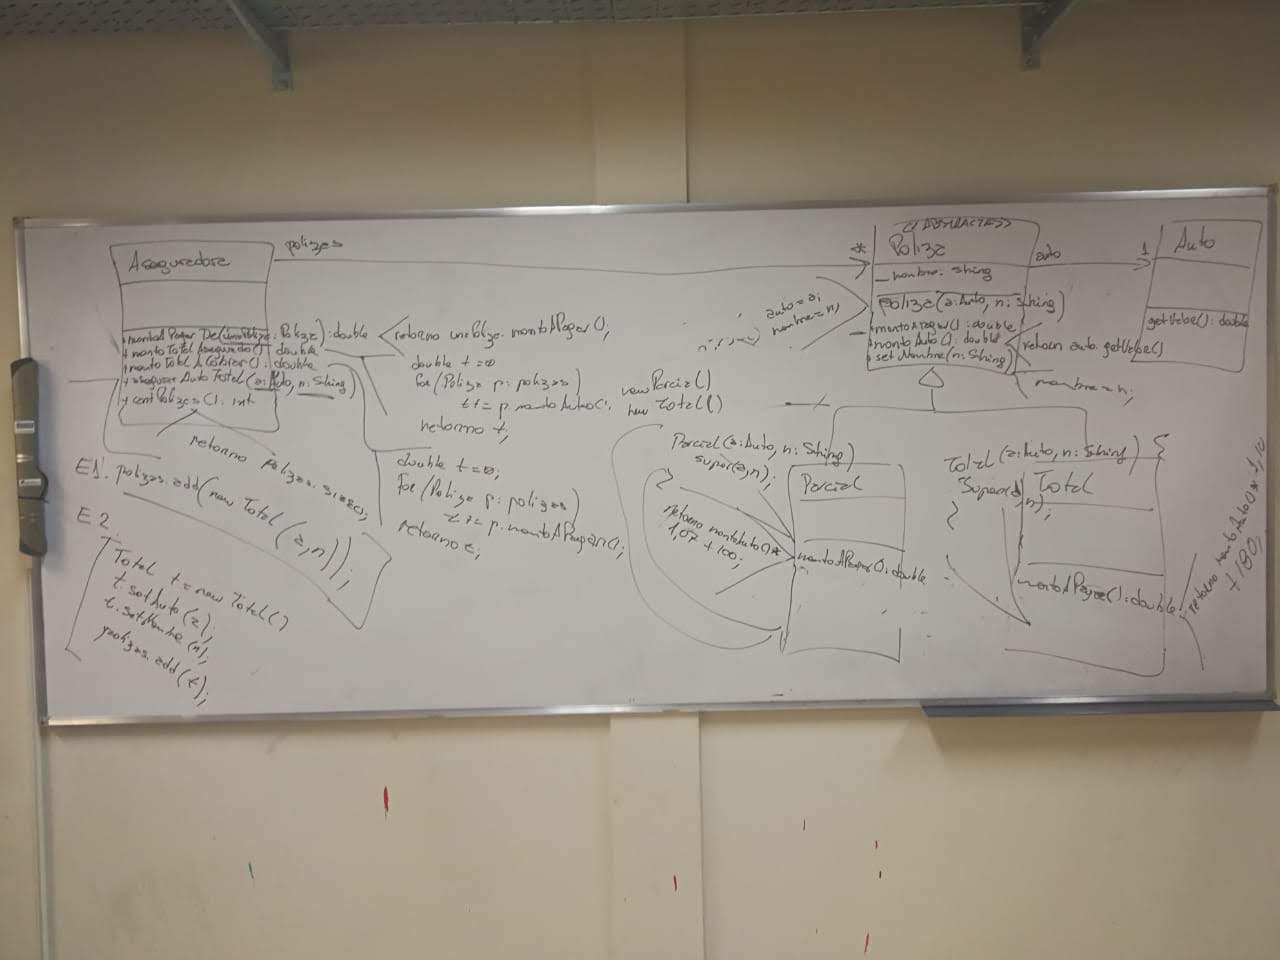 Aseguradora
polizas
*
auto
1
+ montoAPagarDe(unaPoliza: Poliza): double
+ montoTotalAsegurado(): double
+ montoTotalACobrar(): double
+ asegurarAutoTotal(a: Auto, n: String)
+ cantPolizas(): int
retorno unaPoliza.montoAPagar();
double t=0
for (Poliza p: polizas)
t+= p.montoAuto();
retorno t;
double t=0;
for (Poliza p: polizas)
t+= p.montoAPagar();
retorno t;
retorno polizas.size();
E1. polizas.add(new Total(a,n));
E2.
Total t=new Total()
t.setAuto(a);
t.setNombre(n);
polizas.add(t);
new Parcial()
new Total()
<<ABSTRACT>>
Poliza
- nombre: String
poliza(a:Auto, n:String)
+ montoAPagar(): double
+ montoAuto(): double
+ setNombre(n:String)
auto=a;
nombre=n;
return auto.getValor()
nombre=n;
Auto
double
Parcial(a:Auto, n:String)
super(a,n);
}
Parcial
montoAPagar(): double
retorno montoAuto()*
1,07+100;
Total(a:Auto, n:String) {
Super(a,n);
}
Total
montoAPagar(): double
retorno montoAuto()*1,10
+180;